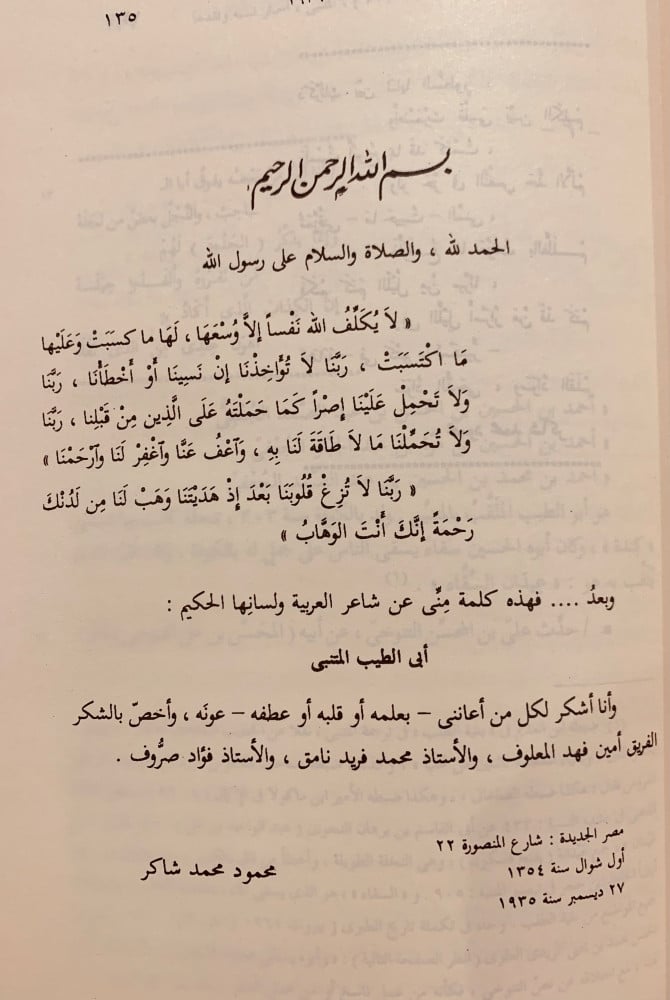 ١٣٥
بسم الله الرحمن الرحيم
الحمد لله ، والصلاة والسلام على رسول الله
« لاَ يُكَلِّفُ الله نَفْساً إلاَّ وُسْعَهَا ، لَهَا ما كسبَتْ وَعَلَيْها
مَا اكْتَسَبَتْ ، رَبَّنَا لاَ تُؤَاخِذْنَا إنْ نَسِينَا أَوْ أَخْطَأْنَا ، رَبَّنَا
وَلاَ تَحْمِلْ عَلَيْنَا إصْراً كَمَا حَمَلْتَهُ عَلَى الَّذِين مِنْ قَبْلِنا ، رَبَّنَا
وَلاَ تُحَمِّلْنَا مَا لاَ طَاقَةَ لَنَا بِهِ ، وَآعْفُ عَنَّا وآغْفِرْ لَنَا وَآرْحَمْنَا »
« رَبَّنَا لاَ تُزِغْ قُلُوبَنَا بَعْدَ إذْ هَدَيْتَنَا وَهَبْ لَنَا مِن لَدُنْكَ
رَحْمَةً إنَّكَ أَنْتَ الوَهَّابُ »
وبعدُ .... فهذه كلمة مِنِّى عن شاعر العربية ولسانِها الحكيم :
أبى الطيب المتنبى
وأنا أشكر لكل من أعاننى – بعلمه أو قلبه أو عطفه – عونَه ، وأخصّ بالشكر
الفريق أمين فهد المعلوف ، والأستاذ محمد فريد نامق ، والأستاذ فؤاد صرُّوف .
مصر الجديدة : شارع المنصورة ٢٢
أول شوال سنة ١٣٥٤
٢٧ ديسمبر سنة ١٩٣٥
محمود محمد شاكر